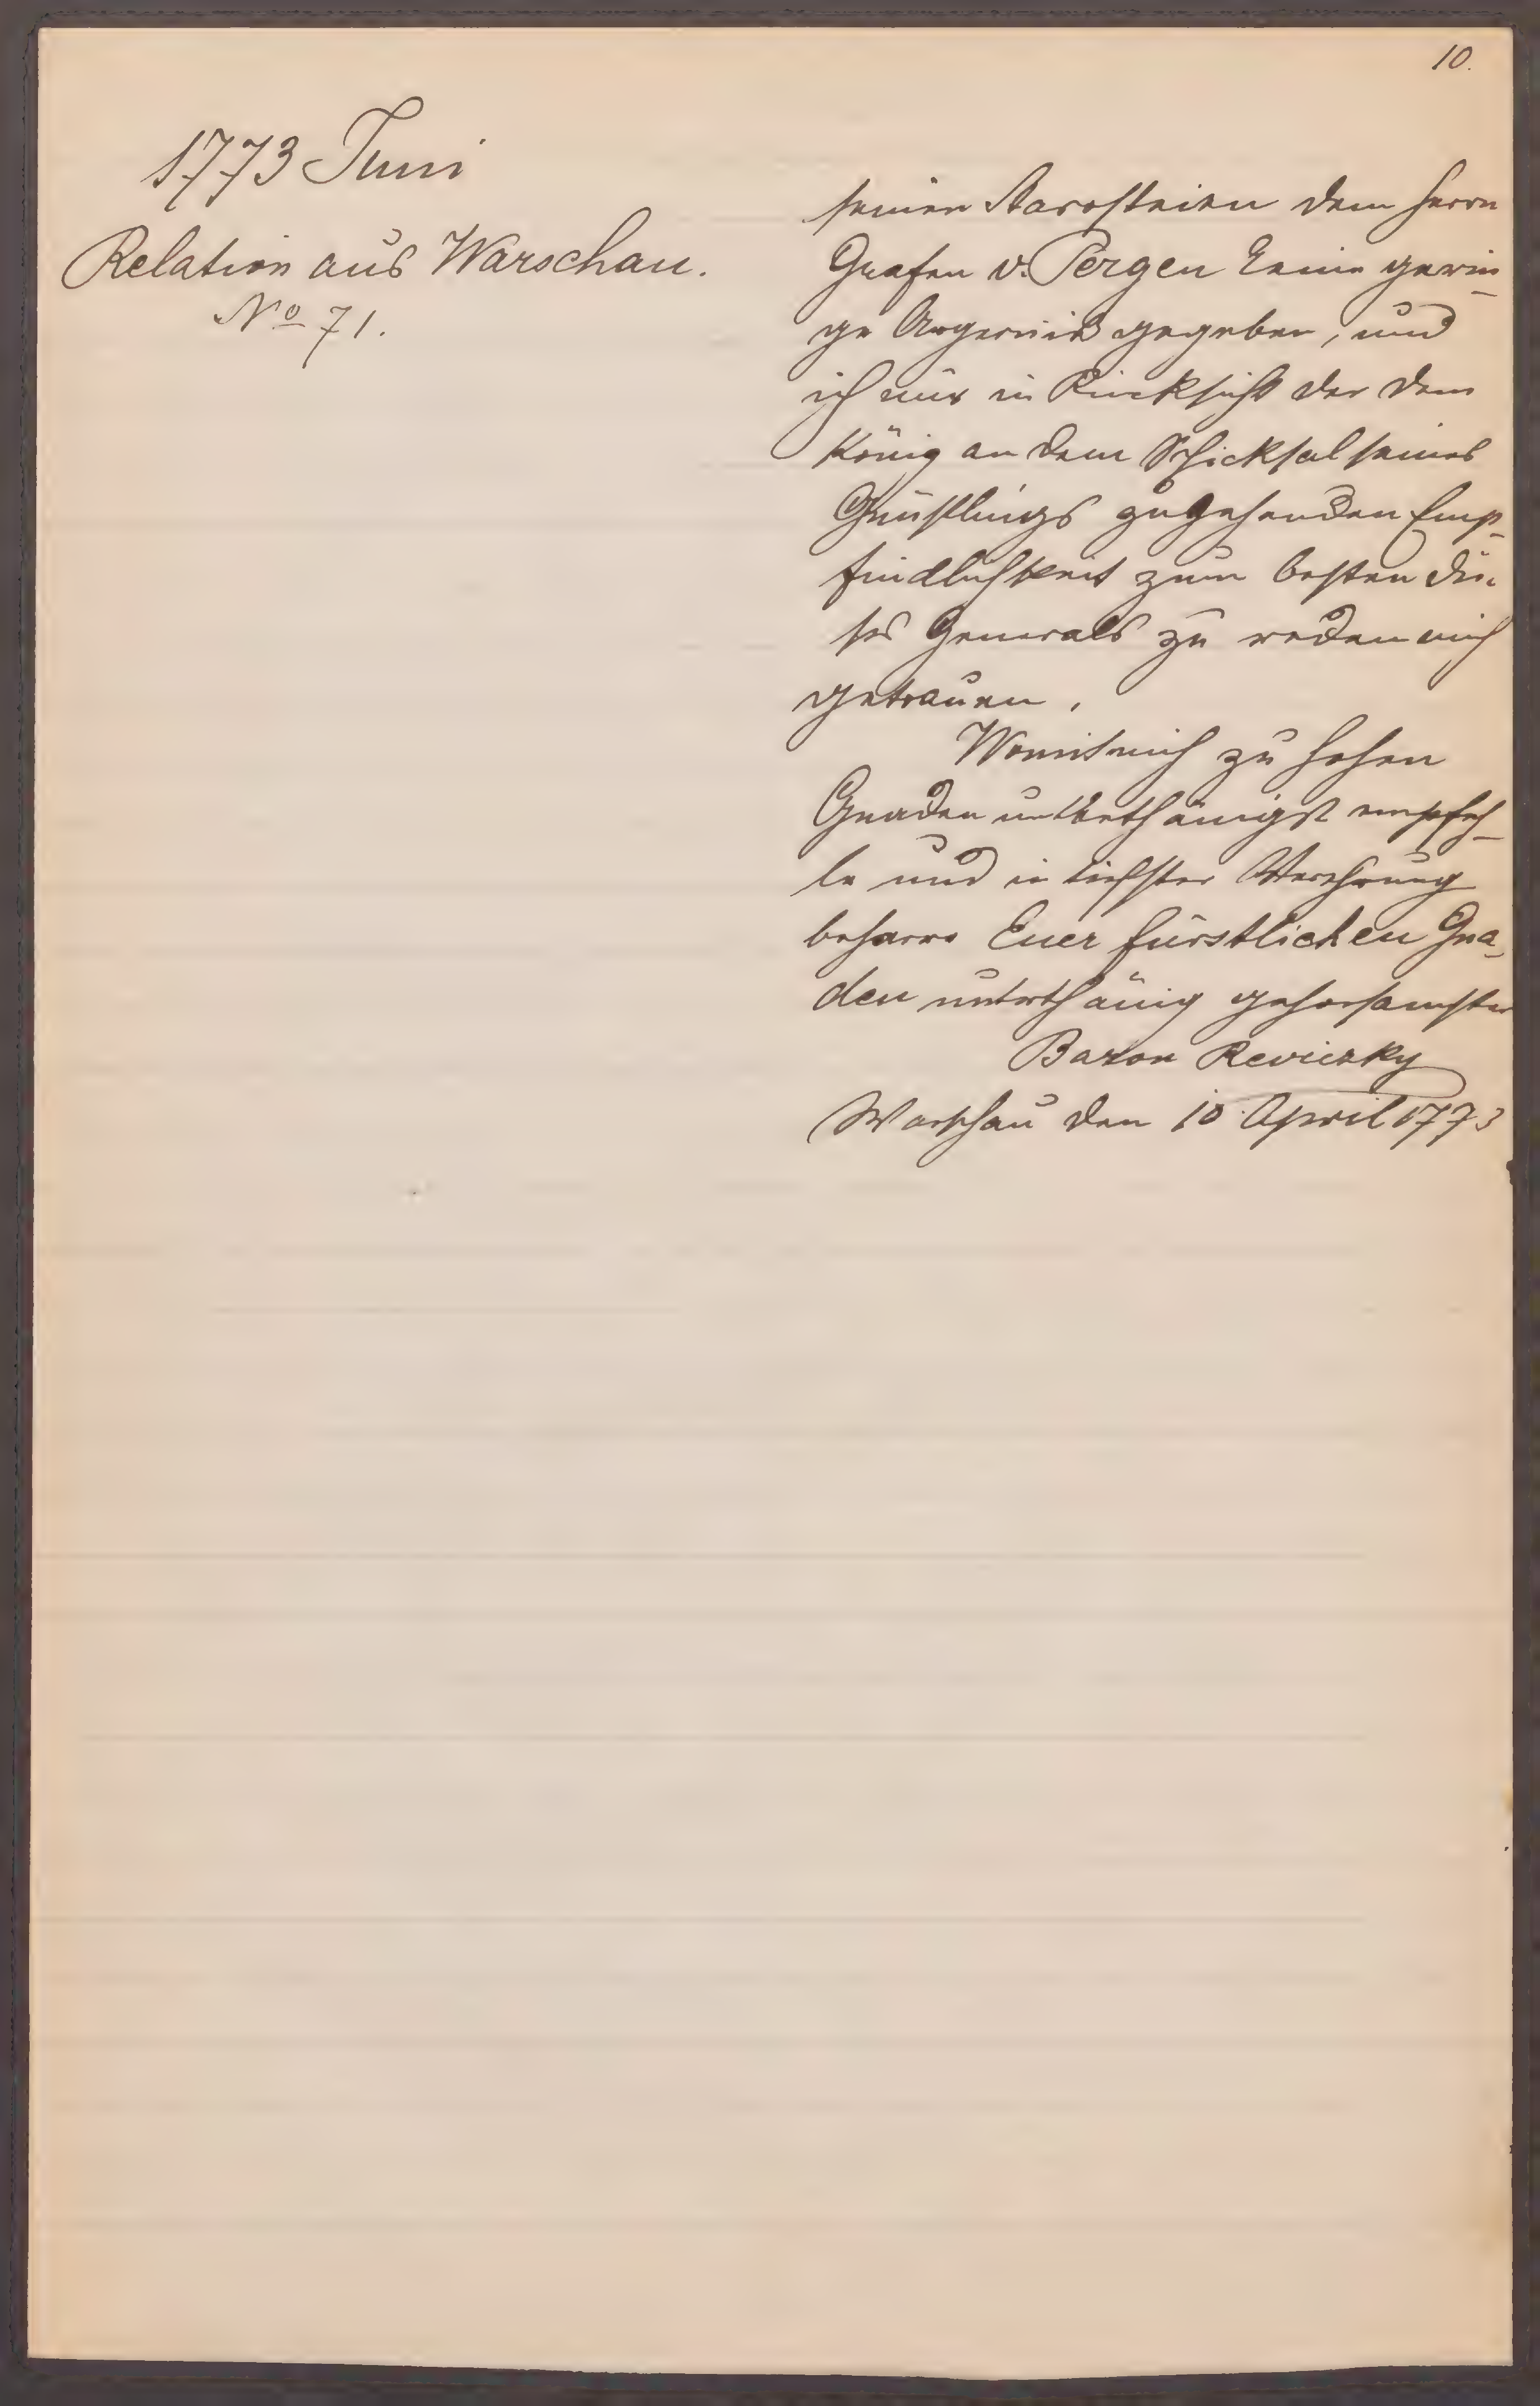 10.
1773 Juni
Relation aus Warschau.
No 71.
seinen Starosteien dem Herrn
Grafen v. Pergen keine gerin-
ge Ärgerniß gegeben, und
ich nur in Rücksicht der dem
König an dem Schicksal seines
Günstlings zugehenden Emp-
findlichkeit zum besten die-
ses Generals zu reden mich
getrauen.
Womit mich zu hohen
Gnaden unterthänigst empfeh-
le und in tiefster Verehrung
beharre Euer fürstlichen Gna-
den unterthänig gehorsamster
Baron Reviczky
Warschau den 10. April 1773